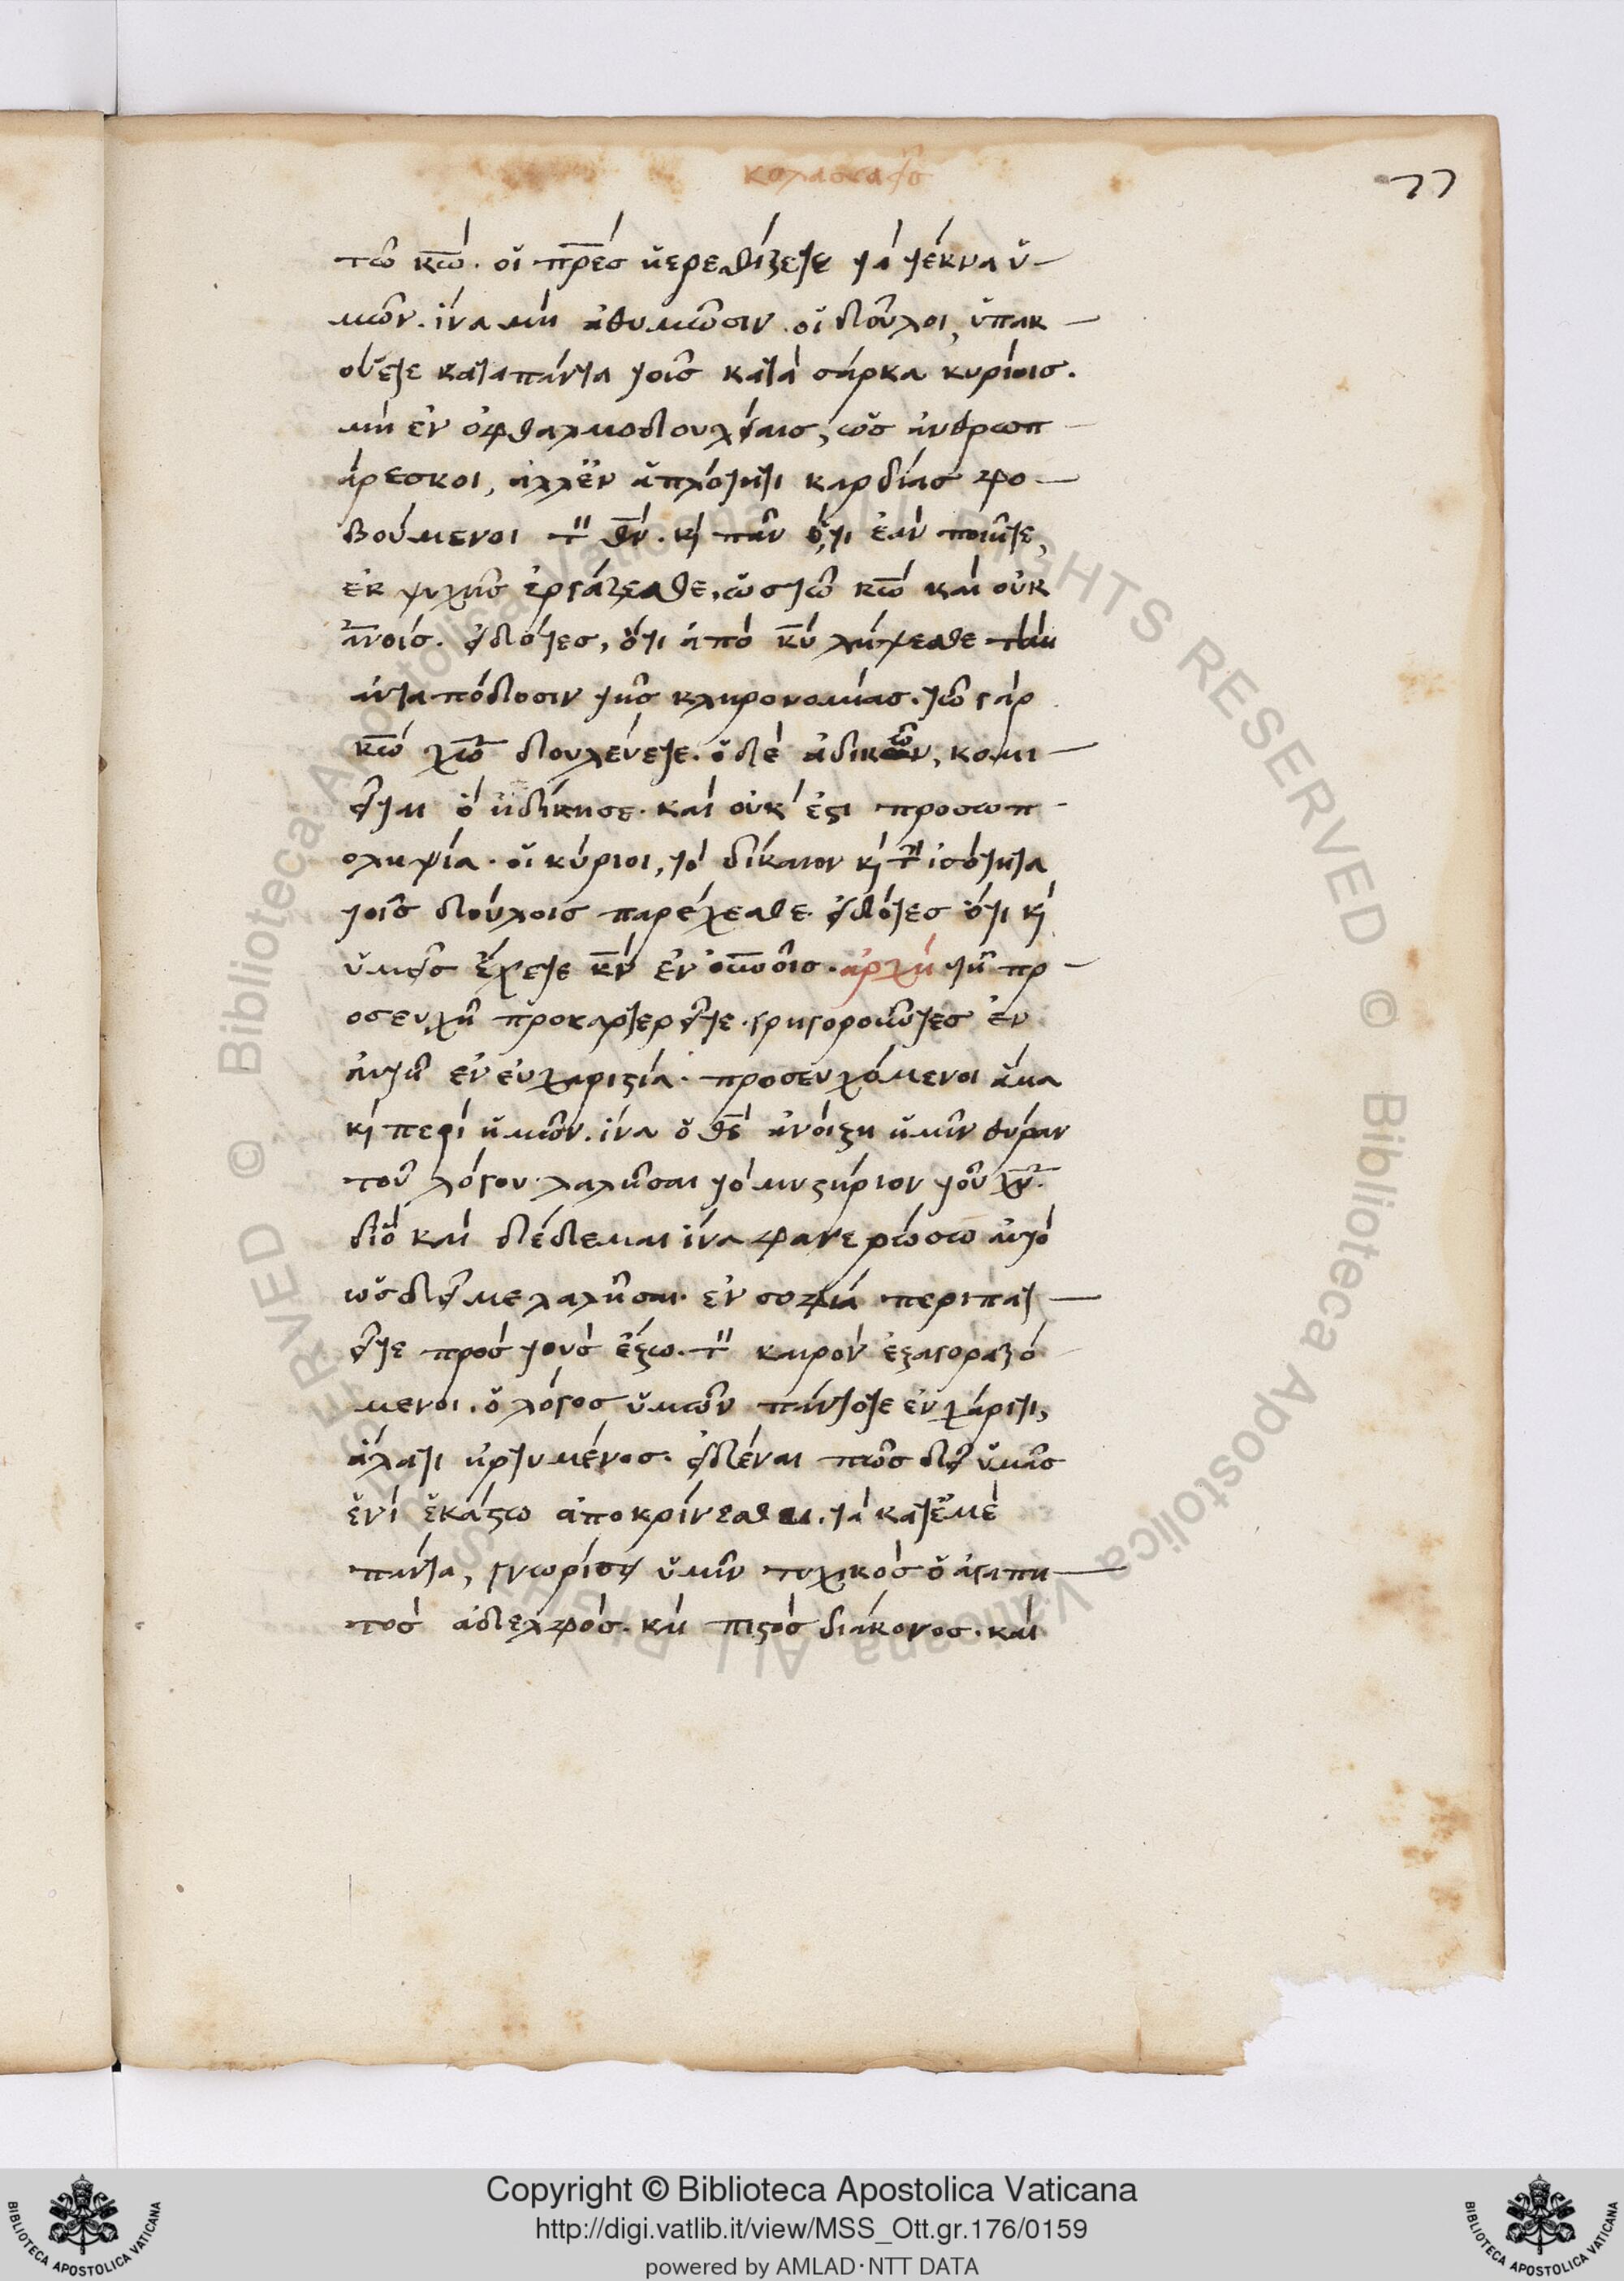 κολασσαεῖς
77
τῶ κ̅ω̅. οἱ π̅ρ̅ε̅ς̅ μὴ ἐρεθίζετε τὰ τέκνα ὑ-
μῶν. ἵνα μὴ ἀθυμῶσιν. οἱ δοῦλοι, ὑπακ-
ούετε κατὰ πάντα τοῖς κατὰ σάρκα κυρίοις.
μὴ ἐν ὀφθαλμοδουλείαις, ὡς ἀνθρωπ-
άρεσκοι, ἀλλ' ἐν ἁπλότητι καρδίας φο-
βούμενοι τὸν θ̅ν̅. κ̀ πᾶν ὅ,τι ἐὰν ποιῆτε,
ἐκ ψυχῆς ἐργάζεσθε, ὡς τῶ κ̅ω̅ καὶ οὐκ
ἀ̅ν̅ο̅ι̅ς̅. εἰδότες, ὅτι ἀπὸ κ̅υ̅ λήψεσθε τὴν
ἀνταπόδοσιν τῆς κληρονομίας. τῶ γὰρ
κ̅ω̅ χ̅ω̅ δουλεύετε. ὁ δὲ ἀδικῶν, κομι-
εῖται ὃ ἠδίκησε. καὶ οὐκ ἔστι προσωπ-
οληψία. οἱ κύριοι, τὸ δίκαιον κ̀ τὴν ἰσότητα
τοῖς δούλοις παρέχεσθε. εἰδότες ὅτι κ̀
ὑμεῖς ἔχετε κ̅ν̅ ἐν ο̅υ̅ν̅ο̅ι̅ς̅. ἀρχὴ τῆ πρ-
οσευχῆ προσκαρτερεῖτε. γρηγοροῦντες ἐν
αὐτῆ ἐν εὐχαριστία. προσευχόμενοι ἅμα
κ̀ περὶ ἡμῶν. ἵνα ὁ θ̅ς̅ ἀνοίξη ἡμῖν θύραν
τοῦ λόγου. λαλῆσαι τὸ μυστήριον τοῦ χ̅υ̅.
διὸ καὶ δέδεμαι ἵνα φανερώσω αὐτὸ
ὡς δεῖ με λαλῆσαι. ἐν σοφία περιπατ-
εῖτε πρὸς τοὺς ἔξω. τὸν καιρὸν ἐξαγοραζό
μενοι. ὁ λόγος ὑμῶν πάντοτε ἐν χάριτι,
ἅλατι ἠρτυμένος. εἰδέναι πῶς δεῖ ὑμᾶς
ἑνὶ ἑκάστω ἀποκρίνεσθαι. τὰ κατ' ἐμὲ
πάντα, γνωρίσει ὑμῖν τυχικὸς ὁ ἀγαπη-
τὸς ἀδελφὸς. καὶ πιστὸς διάκονος. καὶ
Copyright © Biblioteca Apostolica Vaticana
http://digi.vatlib.it/view/MSS_Ott.gr.176/0159
powered by AMLAD·NTT DATA